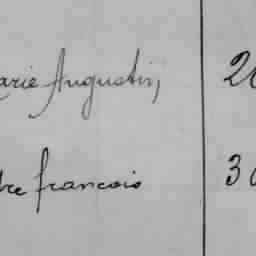 arie Augustin, 20
re francois 30